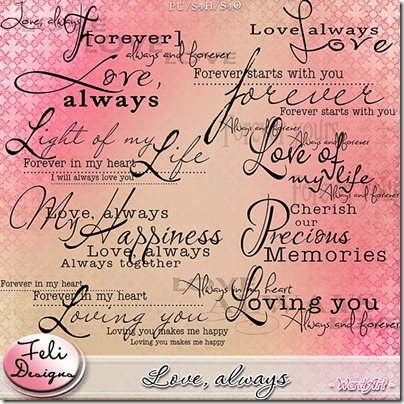 PU/S4H/S4O
Love, always
[forever]
always and forever
LOVE
Love always
Love
Love,
always
Forever starts with you
forever
Forever starts with you
Light of my Life
Forever in my heart
I will always love you
Always and forever
Always and forever
Love of
my life
Always and forever
Love, always
My Happiness
Love, always
Always together
Cherish
our
Precious
Memories
Forever in my heart
Forever in my heart
Loving you
Loving you makes me happy
Loving you makes me happy
Always in my heart
Loving you
Always and forever
Feli
Designs
Love, always
- WordArt -